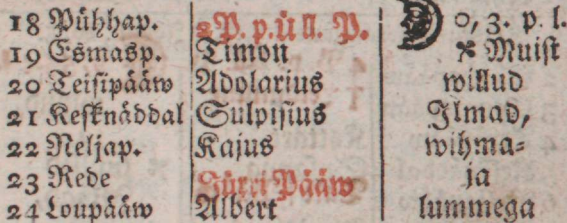 18 Pühhap. 2 P. p. ü ll. P. 0, 3. p. l.
19 Esmasp. Timon Muist
20 Teisipääw Adolarius willud
21 Kesknäddal Sulpisius Ilmad,
22 Neljap. Kajus wihma-
23 Rede Jürri Pääw ja
24 Loupääw Albert lummega